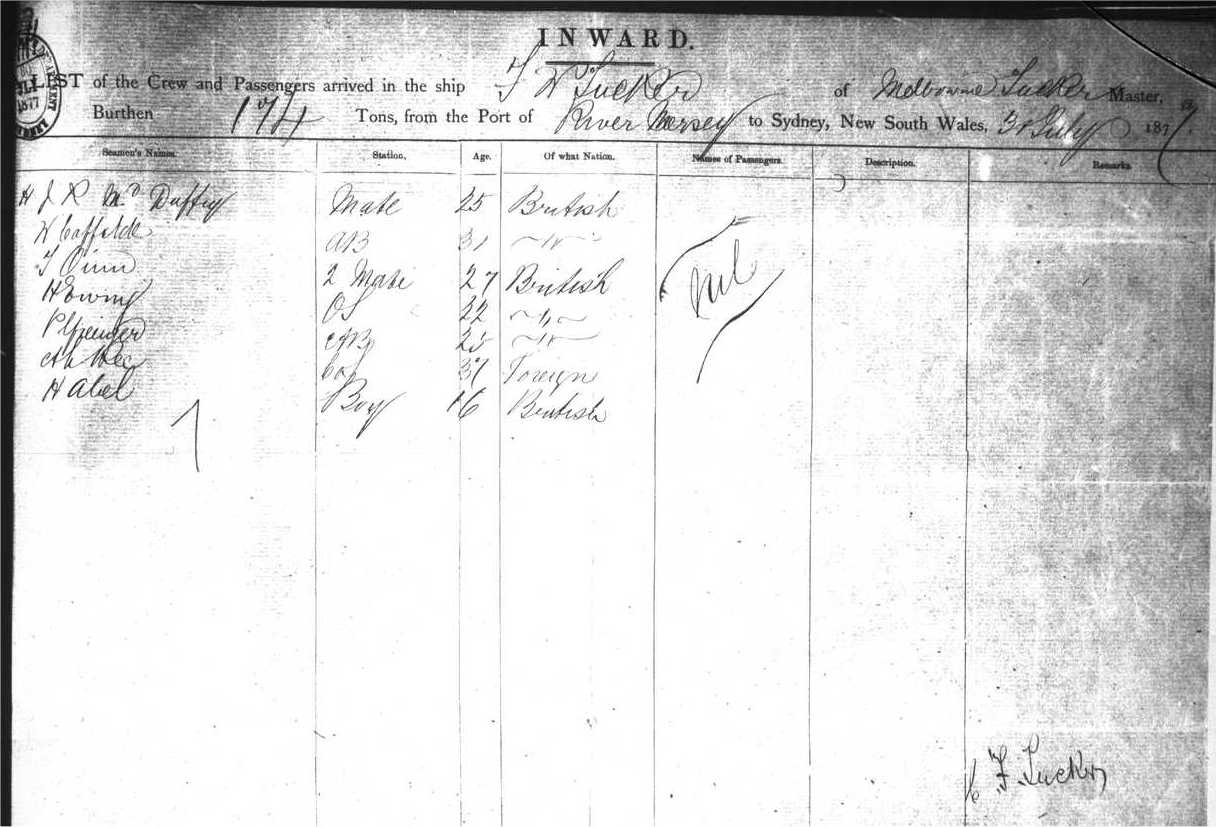 INWARD.
LIST of the Crew and Passengers arrived in the ship T W Tucker of Melbourne Tucker Master,
Burthen 174 Tons, from the Port of River Mersey to Sydney, New South Wales, July 1877
Seamen's Names. Station. Age. Of what Nation. Names of Passengers. Description. Remarks.
H J R Mc Duffey Mate 25 British
W AB 31 〃
T Quinn 2 Mate 27 British
H Ewing OS 22 〃
P AB 25 〃
Ah Kee 37 Foreign
H Abel Boy 16 British
Nil
7
F Tucker